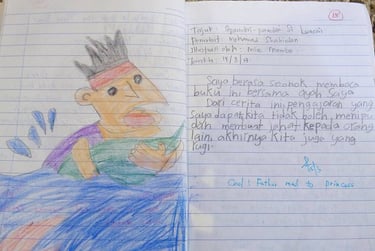 18
Tajuk:
Penerbit Mohamad Shahidan
Ilustrasi oleh:
Tarikh 19/3/
Saya berasa seronok membaca
buku ini bersama ayah saya
Dari cerita ini, pengajaran yang
saya dapat kita tidak boleh menipu
dan membuat jahat kepada orang
lain. akhirnya kita juga yang
rugi.
Cool! Father read to princess